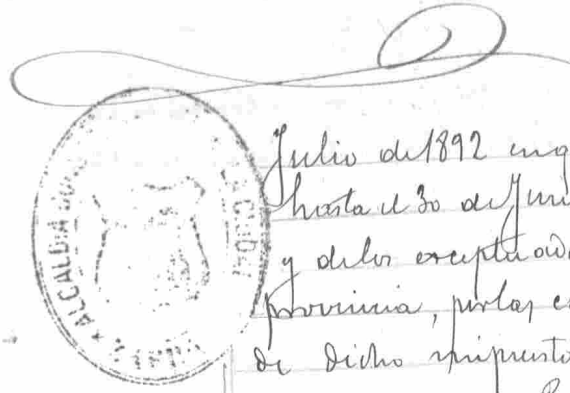 ALCALDIA
Julio de 1892 en q
hasta el 30 de Juni
y de los exceptuad
provincia, por las c
de dicho impuesto